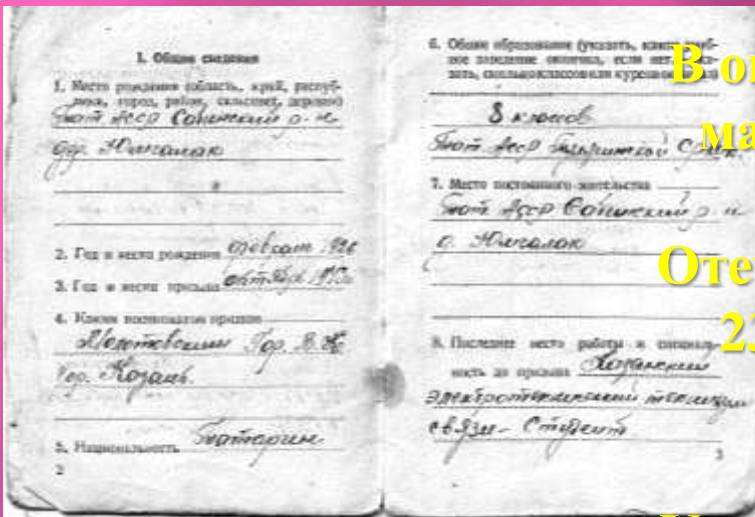 1. Общие сведения
1. Место рождения (область, край, республика, город, район, сельсовет, деревня)
Тат Асср Сабинский р-н
дер. Юлгалак
2. Год и месяц рождения
3. Год и месяц призыва октябрь 1943г
4. Каким военкоматом призван
Молотовский Гор. В.К.
Гор. Казань.
5. Национальность Татарин
2
6. Общее образование (указать, какое учеб-
ное заведение окончил, если нет,
зать, сколько классов или курсов
8 классов
Тат Асср
7. Место постоянного жительства
Тат Асср Сабинский р-н
д. Юлгалак
8. Последнее место работы и специаль-
ность до призыва Казанский
электротехнический техникум
связи - студент
3
В о
ма
Оте
23